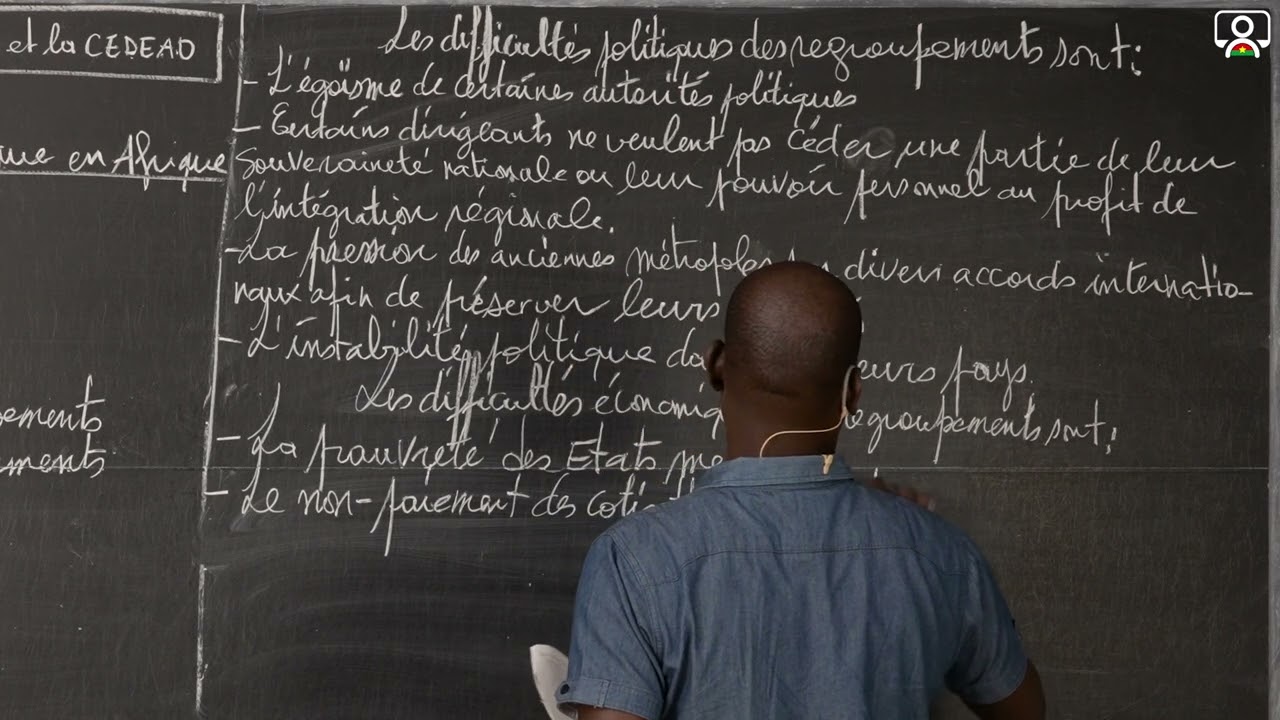 et la CEDEAO
en Afrique
Les difficultés politiques des regroupements sont:
- L'égoïsme de certaines autorités politiques
- Certains dirigeants ne veulent pas céder une partie de leur
souveraineté nationale ou leur pouvoir personnel au profit de
l'intégration régionale.
- La pression des anciennes métropoles divers accords internatio-
naux afin de préserver leurs
- L'instabilité politique pays.
Les difficultés regroupements sont:
- La pauvreté des Etats
- Le non-paiement des